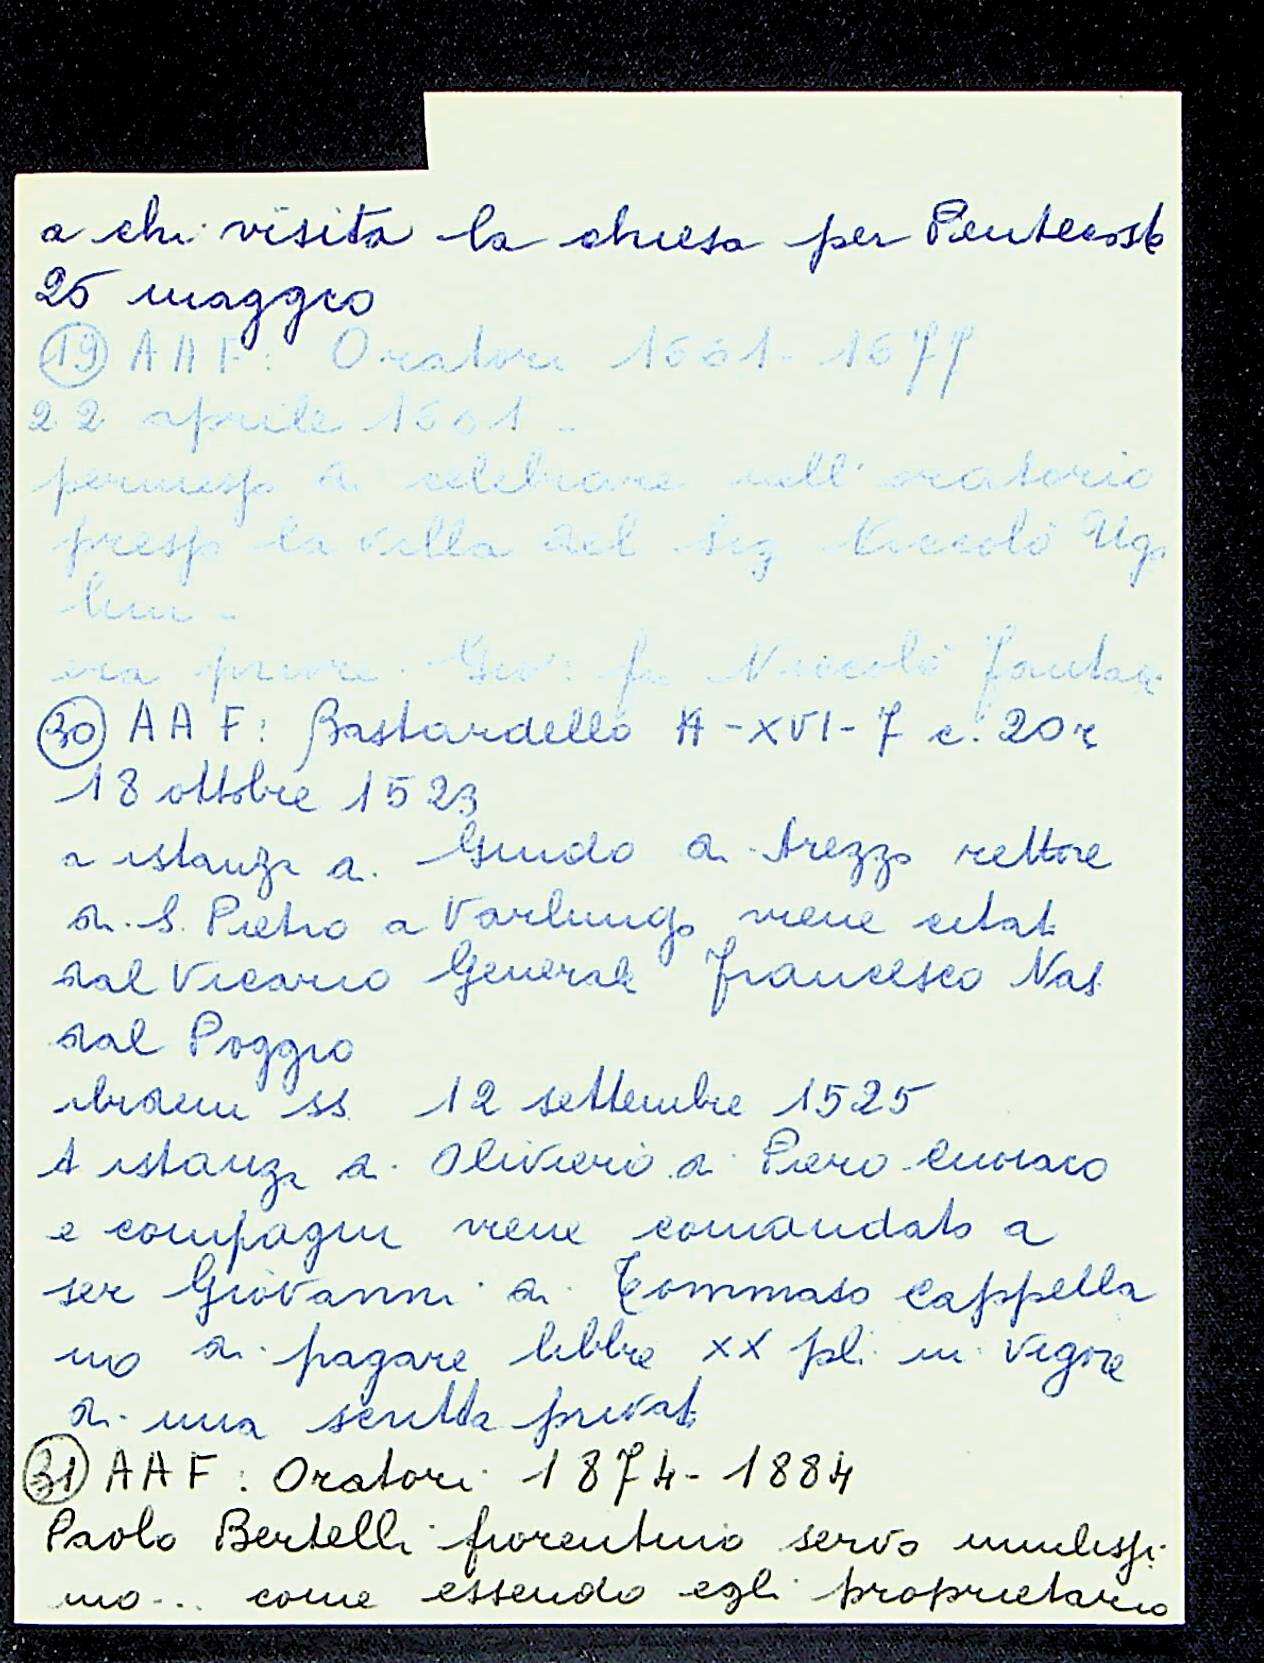 a chi visita la chiesa per Pentecoste
25 maggio
(19) AAF: Oratori 1661-1677
22 aprile 1661 -
permesso di celebrare nell'oratorio
presso la villa del sig Niccolò Ugo
lini -
era priore Gio: fu Niccolò
(30) AAF: Bastardello A-XVI-7 c. 20r
18 ottobre 1523
a istanza di Guido di Arezzo rettore
di S. Pietro a Varlungo viene citato
dal Vicario Generale Francesco Nas
dal Poggio
ibidem ss. 12 settembre 1525
A istanza di Olivieri di Piero
e compagni viene comandato a
ser Giovanni di Tommaso Cappella
no di pagare libbre XX pli in vigore
di una scritta privata
(31) AAF: Oratori 1874-1884
Paolo Bertelli fiorentino servo umilissi
mo... come essendo egli proprietario